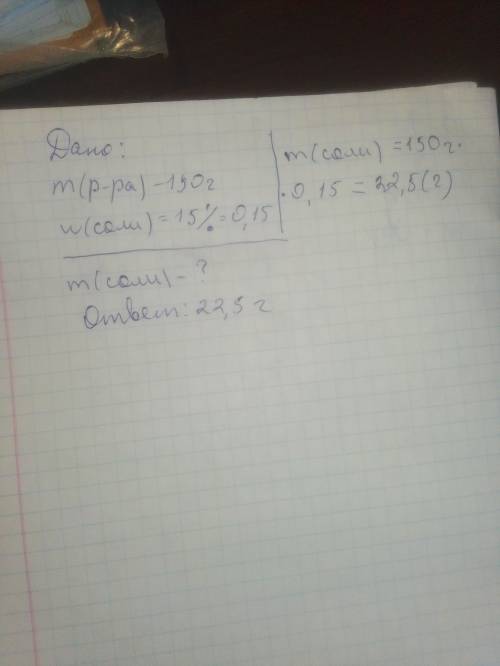 Дано:
m(р-ра) - 150 г
w(соли) = 15% = 0,15
m(соли) - ?
Ответ: 22,5 г
m(соли) = 150 г ·
· 0,15 = 22,5 (г)